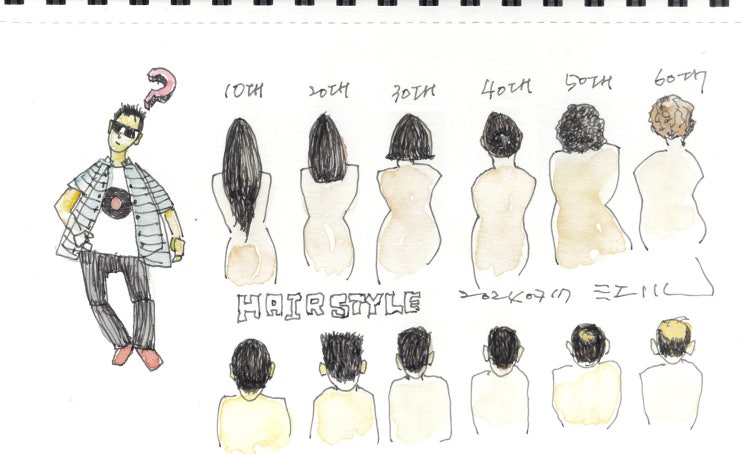 ?
10대 20대 30대 40대 50대 60대
HAIRSTYLE 20240717